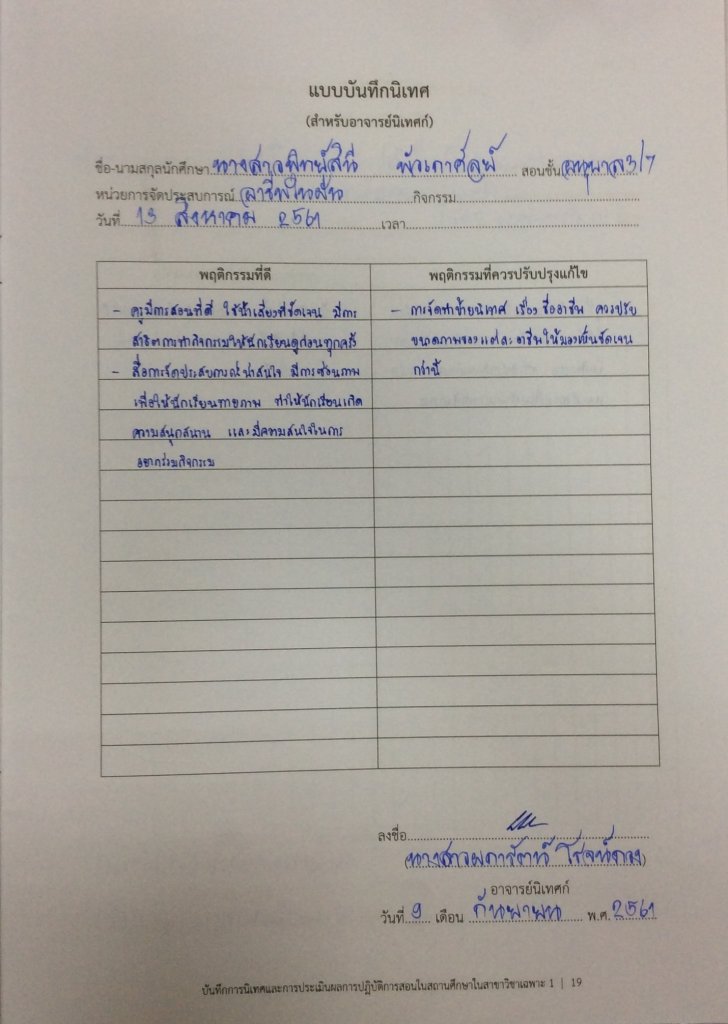 แบบบันทึกนิเทศ
(สำหรับอาจารย์นิเทศก์)
ชื่อ-นามสกุลนักศึกษา นางสาว สอนชั้น อนุบาล 3/7
หน่วยการจัดประสบการณ์ อาชีพในฝัน กิจกรรม
วันที่ 13 สิงหาคม 2561 เวลา
พฤติกรรมที่ดี พฤติกรรมที่ควรปรับปรุงแก้ไข
- ครูมีการสอนที่ดี ใช้น้ำเสียงที่ชัดเจน มีการ - การจัดทำป้ายนิเทศ เรื่อง ชื่ออาชีพ ควรปรับ
สาธิตการทำกิจกรรมให้นักเรียนดูก่อนทุกครั้ง ขนาดภาพของแต่ละอาชีพให้มองเห็นชัดเจน
- สื่อการจัดประสบการณ์น่าสนใจ มีการซ่อนภาพ กว่านี้
เพื่อให้นักเรียนทายภาพ ทำให้นักเรียนเกิด
ความสนุกสนาน และมีความสนใจในการ
อยากร่วมกิจกรรม
ลงชื่อ
(นางสาว)
อาจารย์นิเทศก์
วันที่ 9 เดือน กันยายน พ.ศ. 2561
บันทึกการนิเทศและการประเมินผลการปฏิบัติการสอนในสถานศึกษาในสาขาวิชาเฉพาะ 1 | 19